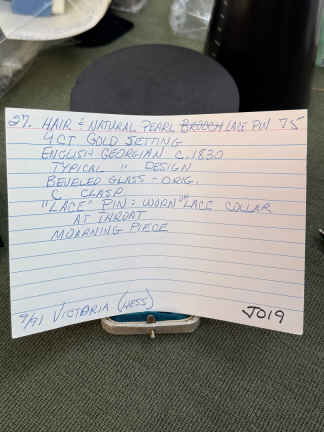 27. HAIR & NATURAL PEARL LACE PIN 75
9 CT GOLD SETTING
ENGLISH GEORGIAN C. 1830
TYPICAL " DESIGN
BEVELED GLASS - ORIG.
C CLASP
"LACE" PIN: WORN ON LACE COLLAR
AT THROAT
MOARNING PIECE
9/71 VICTORIA (HESS)
J019